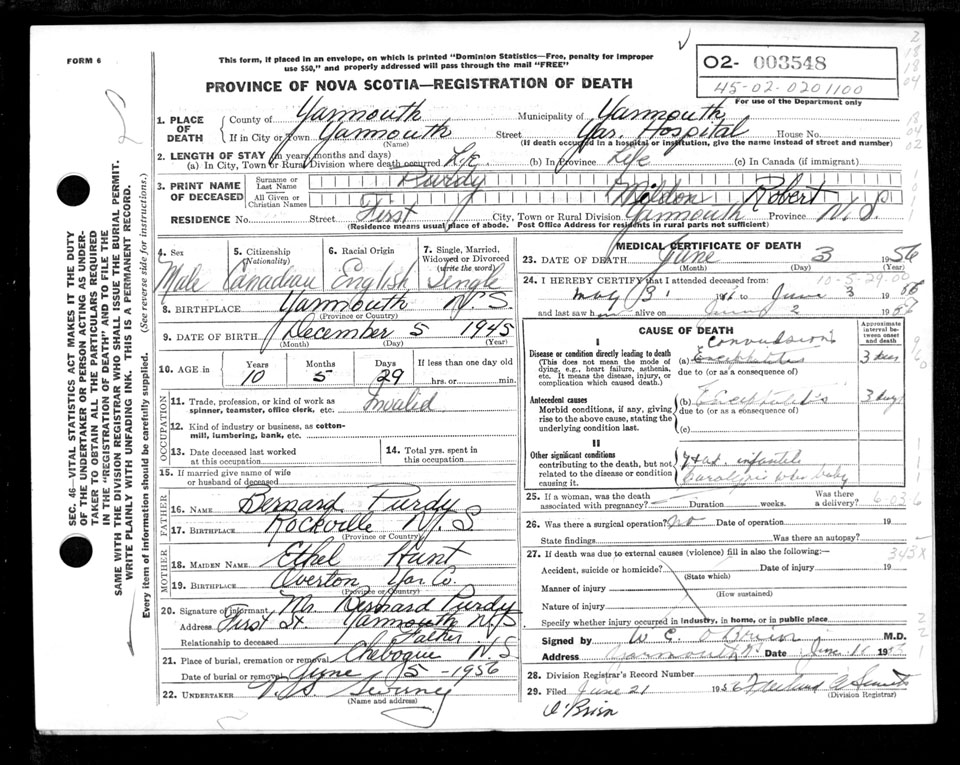 FORM 6
This form, if placed in an envelope, on which is printed "Dominion Statistics—Free, penalty for improper
use $50," and properly addressed will pass through the mail "FREE"
PROVINCE OF NOVA SCOTIA—REGISTRATION OF DEATH
O2- 003548
45-02-0201100
For use of the Department only
SEC. 46—VITAL STATISTICS ACT MAKES IT THE DUTY
OF THE UNDERTAKER OR PERSON ACTING AS UNDER-
TAKER TO OBTAIN ALL THE PARTICULARS REQUIRED
IN THE "REGISTRATION OF DEATH" AND TO FILE THE
SAME WITH THE DIVISION REGISTRAR WHO SHALL ISSUE THE BURIAL PERMIT.
WRITE PLAINLY WITH UNFADING INK. THIS IS A PERMANENT RECORD.
Every item of information should be carefully supplied. (See reverse side for instructions.)
1. PLACE OF DEATH
County of Yarmouth Municipality of Yarmouth
If in City or Town Yarmouth Street Yar. Hospital House No.
(Name) (If death occurred in a hospital or institution, give the name instead of street and number)
2. LENGTH OF STAY (in years, months and days)
(a) In City, Town or Rural Division where death occurred Life (b) In Province Life (c) In Canada (if immigrant)
3. PRINT NAME OF DECEASED
Surname or Last Name Purdy
All Given or Christian Names Robert
RESIDENCE No. Street First City, Town or Rural Division Yarmouth Province N.S.
(Residence means usual place of abode. Post Office Address for residents in rural parts not sufficient)
4. Sex Male
5. Citizenship (Nationality) Canadian
6. Racial Origin English
7. Single, Married, Widowed or Divorced (write the word) Single
8. BIRTHPLACE Yarmouth N.S.
(Province or Country)
9. DATE OF BIRTH December 5 1945
(Month) (Day) (Year)
10. AGE in Years 10 Months 5 Days 29 If less than one day old
hrs. or min.
OCCUPATION
11. Trade, profession, or kind of work as Invalid
spinner, teamster, office clerk, etc.
12. Kind of industry or business, as cotton-
mill, lumbering, bank, etc.
13. Date deceased last worked at this occupation
14. Total yrs. spent in this occupation
15. If married give name of wife
or husband of deceased
FATHER
16. Name Bernard Purdy
17. Birthplace Rockville N.S
(Province or Country)
MOTHER
18. Maiden Name Ethel Hunt
19. Birthplace Overton Yar Co.
(Province or Country)
20. Signature of informant Mr. Bernard Purdy
Address First St. Yarmouth N.S
Relationship to deceased Father
21. Place of burial, cremation or removal Chebogue N.S
Date of burial or removal June 5-1956
22. UNDERTAKER Sweeny
(Name and address)
MEDICAL CERTIFICATE OF DEATH
23. DATE OF DEATH June 3 1956
(Month) (Day) (Year)
24. I HEREBY CERTIFY that I attended deceased from:
May 31 to June 3 1956
and last saw h alive on June 2 19
CAUSE OF DEATH
Approximate interval between onset and death
I
Disease or condition directly leading to death
(This does not mean the mode of dying, e.g., heart failure, asthenia, etc. It means the disease, injury, or complication which caused death.)
convulsions
(a) Encephalitis
due to (or as a consequence of)
3 days
Antecedent causes
Morbid conditions, if any, giving rise to the above cause, stating the underlying condition last.
(b) Encephalitis
due to (or as a consequence of)
3 days
(c)
II
Other significant conditions
contributing to the death, but not related to the disease or condition causing it.
infantile
paralysis when baby
25. If a woman, was the death associated with pregnancy? Duration weeks. Was there a delivery?
6-036
26. Was there a surgical operation? no Date of operation 19
State findings Was there an autopsy?
27. If death was due to external causes (violence) fill in also the following:—
343X
Accident, suicide or homicide? Date of injury 19
(State which)
Manner of injury
(How sustained)
Nature of injury
Specify whether injury occurred in industry, in home, or in public place
Signed by W C O'Brien M.D.
Address Yarmouth NS Date June 11 19
28. Division Registrar's Record Number
29. Filed June 21 1956
(Division Registrar)
O'Brien